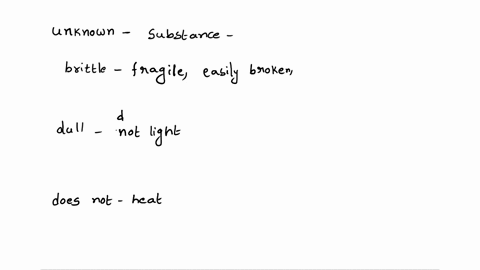 unknown - substance -
brittle - fragile, easily broken,
d
dull - not light
does not - heat